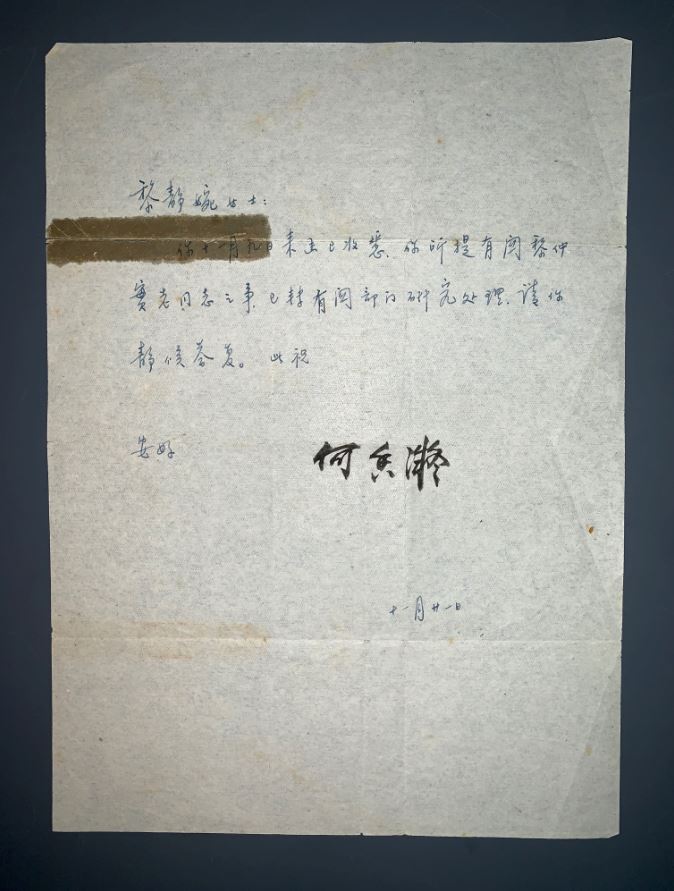 黎静婉女士：
你十一月九日来函已收悉，你所提有関黎仲
實老同志之事，已转有関部门研究处理，请你
静候答复。此祝
安好
何香凝
十一月廿一日